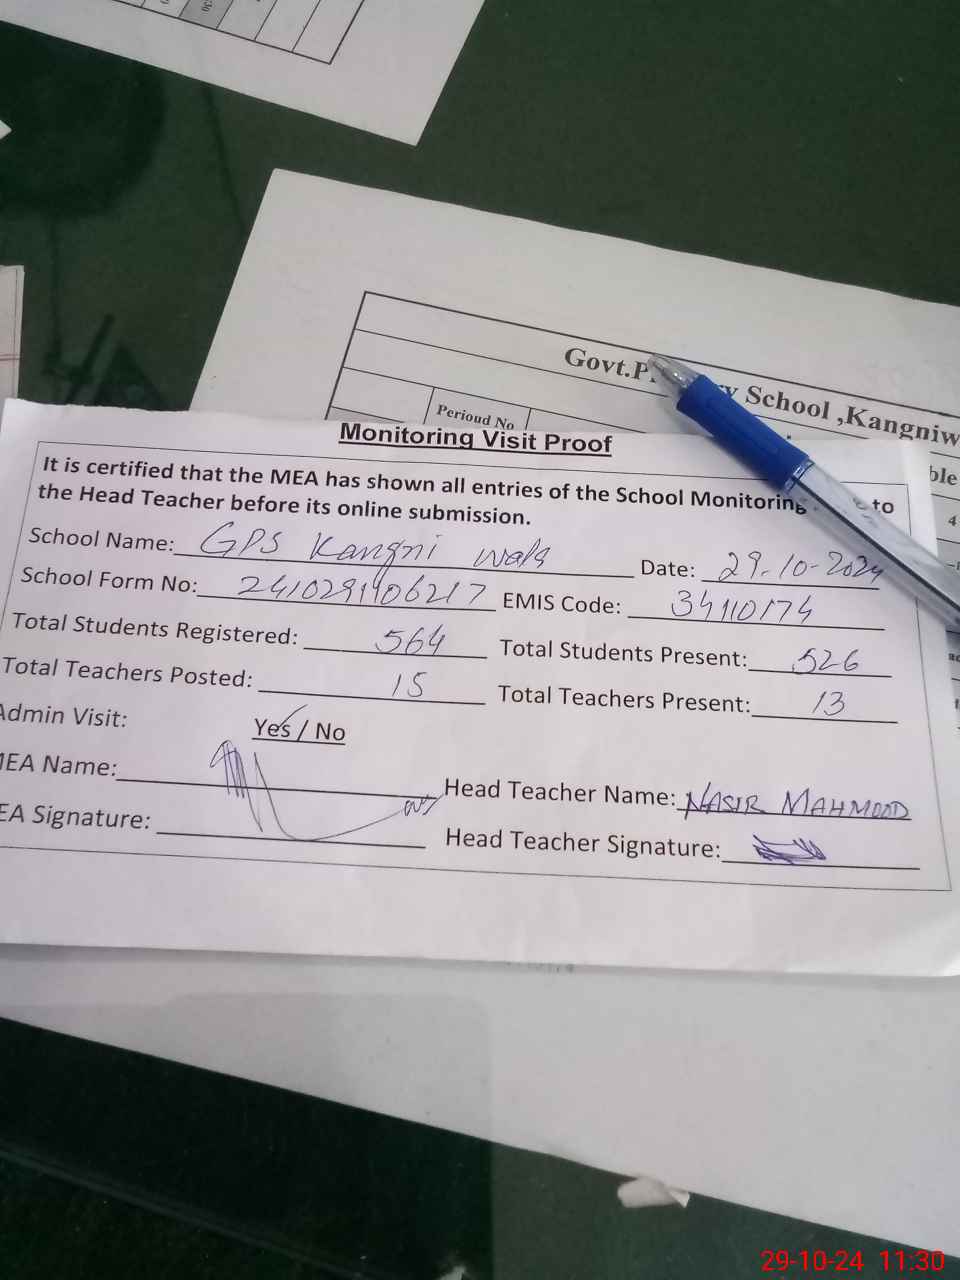 30
Govt.P    y School ,Kangniw
Perioud No
ble
4
Monitoring Visit Proof
It is certified that the MEA has shown all entries of the School Monitoring to
the Head Teacher before its online submission.
School Name: GPS Kangni wala Date: 29-10-2024
School Form No: 241029106217 EMIS Code: 34110174
Total Students Registered: 564 Total Students Present: 526
Total Teachers Posted: 15 Total Teachers Present: 13
Admin Visit: Yes / No
MEA Name: Head Teacher Name: NASIR MAHMOOD
EA Signature: Head Teacher Signature:
29-10-24 11:30